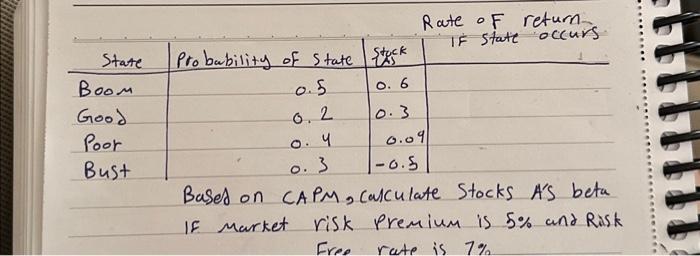 Rate of return
IF State occurs
State Probability of State Stock A's
Boom 0.5 0.6
Good 0.2 0.3
Poor 0.4 0.09
Bust 0.3 -0.5
Based on CAPM, calculate Stocks A's beta
IF Market risk Premium is 5% and Risk
Free rate is 7%